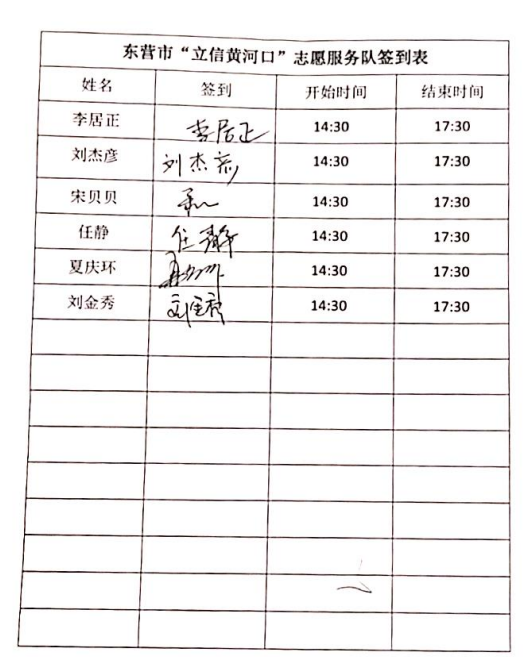 东营市“立信黄河口”志愿服务队签到表
姓名 签到 开始时间 结束时间
李居正 李居正 14:30 17:30
刘杰彦 刘杰彦 14:30 17:30
宋贝贝 14:30 17:30
任静 任静 14:30 17:30
夏庆环 14:30 17:30
刘金秀 刘金秀 14:30 17:30